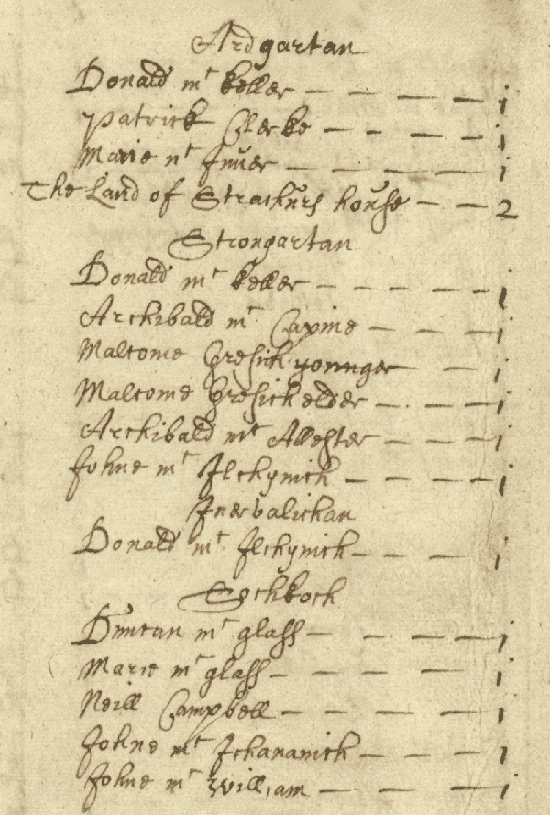 Ardgartan
Donald mc keller — — — — j
Patrick Clerke — — — — j
Marie nc Inuer — — — — j
The Land of Strachurs house — — 2
Strongartan
Donald mc keller — — — — j
Archibald mc Caxine — — — j
Malcome Gresich younger — — j
Malcome Gresich elder — — — j
Archibald mc Allester — — — j
Johne mc Ilchynich — — — — j
Inervalichan
Donald mc Ilchynich — — — j
Sochkoch
Duncan mc glass — — — — j
Marie mc glass — — — — j
Neill Campbell — — — — j
Johne mc Ichananich — — — j
Johne mc William — — — — j